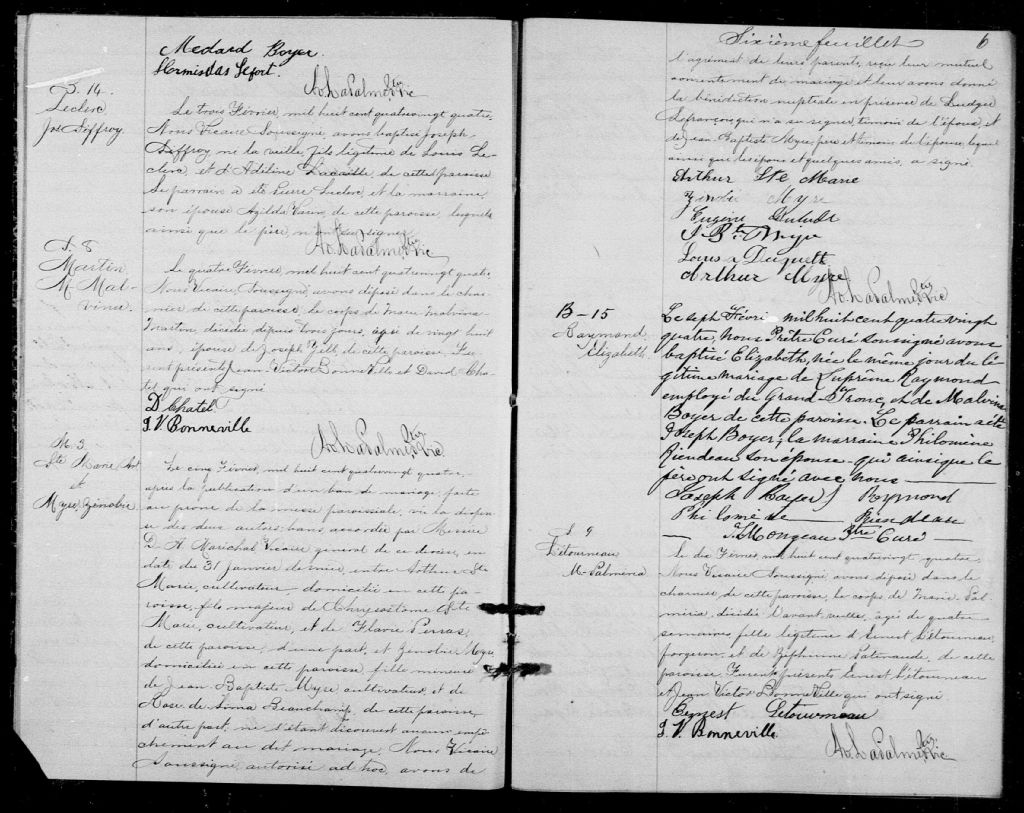 Medard Boyer.
Hermisdas Lefort.
Ad. Lapalme Ptre Vic
B. 14.
Leclerc
Jos Joffroy
Le trois Février, mil huit cent quatrevingt quatre,
Nous Vicaire Soussigné, avons baptisé Joseph-
Joffroy né la veille, fils légitime de Louis Le-
clerc, et d'Adeline Lacaille, de cette paroisse
Le parrain a été Pierre Leclerc, et la marraine
son épouse Agilda de cette paroisse, lesquels
ainsi que le père, n'ont su signer
Ad. Lapalme Ptre Vic
S. 8
Martin
M. Mal-
vina.
Le quatre Février, mil huit cent quatrevingt quatre
Nous Vicaire, Soussigné, avons déposé dans le char-
nier de cette paroisse, le corps de Marie Malvina
Martin, décédée depuis trois jours, agée de vingt huit
ans, épouse de Joseph de cette paroisse. Fu-
rent présents Jean Victor Bonneville et David Cha-
tel qui ont signé
D Chatel
J. V Bonneville
Ad. Lapalme Ptre Vic
M. 3
Ste Marie, Art
et
Myre Zénobie
Le cinq Février, mil huit cent quatrevingt quatre,
après la publication d'un ban de mariage, faite
au prone de la messe paroissiale, vu la dispen
des deux autres bans accordée par Messire
D. A Maréchal Vicaire général de ce diocèse, en
date du 31 janvier dernier, entre Arthur Ste
Marie, cultivateur, domicilié en cette pa-
roisse, fils majeur de Chrysostôme Ste
Marie, cultivateur, et de Flavie Perras,
de cette paroisse, d'une part, et Zénobie Myre,
domiciliée en cette paroisse, fille mineure
de Jean Baptiste Myre cultivateur, et de
Rose de Lima Beauchamp, de cette paroisse,
d'autre part, ne s'étant découvert aucun empê-
chement au dit mariage, Nous Vicaire
Soussigné, autorisé ad hoc, avons de
Sixième feuillet 6
l'agrément de leurs parents, reçu leur mutuel
consentement de mariage et leur avons donné
la bénédiction nuptiale en présence de Ludger
Lefrançois qui n'a su signer, témoin de l'époux, et
de Jean Baptiste Myre, père et témoin de l'épouse, lequel
ainsi que les époux et quelques amis, a signé
Arthur Ste Marie
Zénobie Myre
Eugène Dulude
J. Bte Myre
Louis a Duquette
Arthur Myre
Ad. Lapalme Ptre Vic
B-15
Raymond
Elizabeth.
Le sept Févri mil huit cent quatre vingt
quatre, nous Prêtre Curé soussigné avons
baptisé Elizabeth, née le même jour du lé-
gitime mariage de Suprême Raymond
employé du Grand Tronc, et de Malvina
Boyer de cette paroisse. Le parrain a été
Joseph Boyer; la marraine Philomène
Riendeau son épouse qui ainsi que le
père, ont signé avec nous
Joseph Boyer S Reymond
Philomène Riendeau
J. Mongeau Ptre Curé
S 9
Létourneau
M-Palméria
le dix Février, mil huit cent quatrevingt quatre,
Nous Vicaire Soussigné, avons déposé dans le
charnier de cette paroisse, le corps de Marie Pal-
méria, décédée l'avant veille, agée de quatre
semaines fille légitime d'Ernest Létourneau,
forgeron, et de Zéphirine Patenaude, de cette
paroisse. Furent présents Ernest Létourneau
et Jean Victor Bonneville qui ont signé
Ernest Letourneau
J. V Bonneville
Ad. Lapalme Ptre Vic